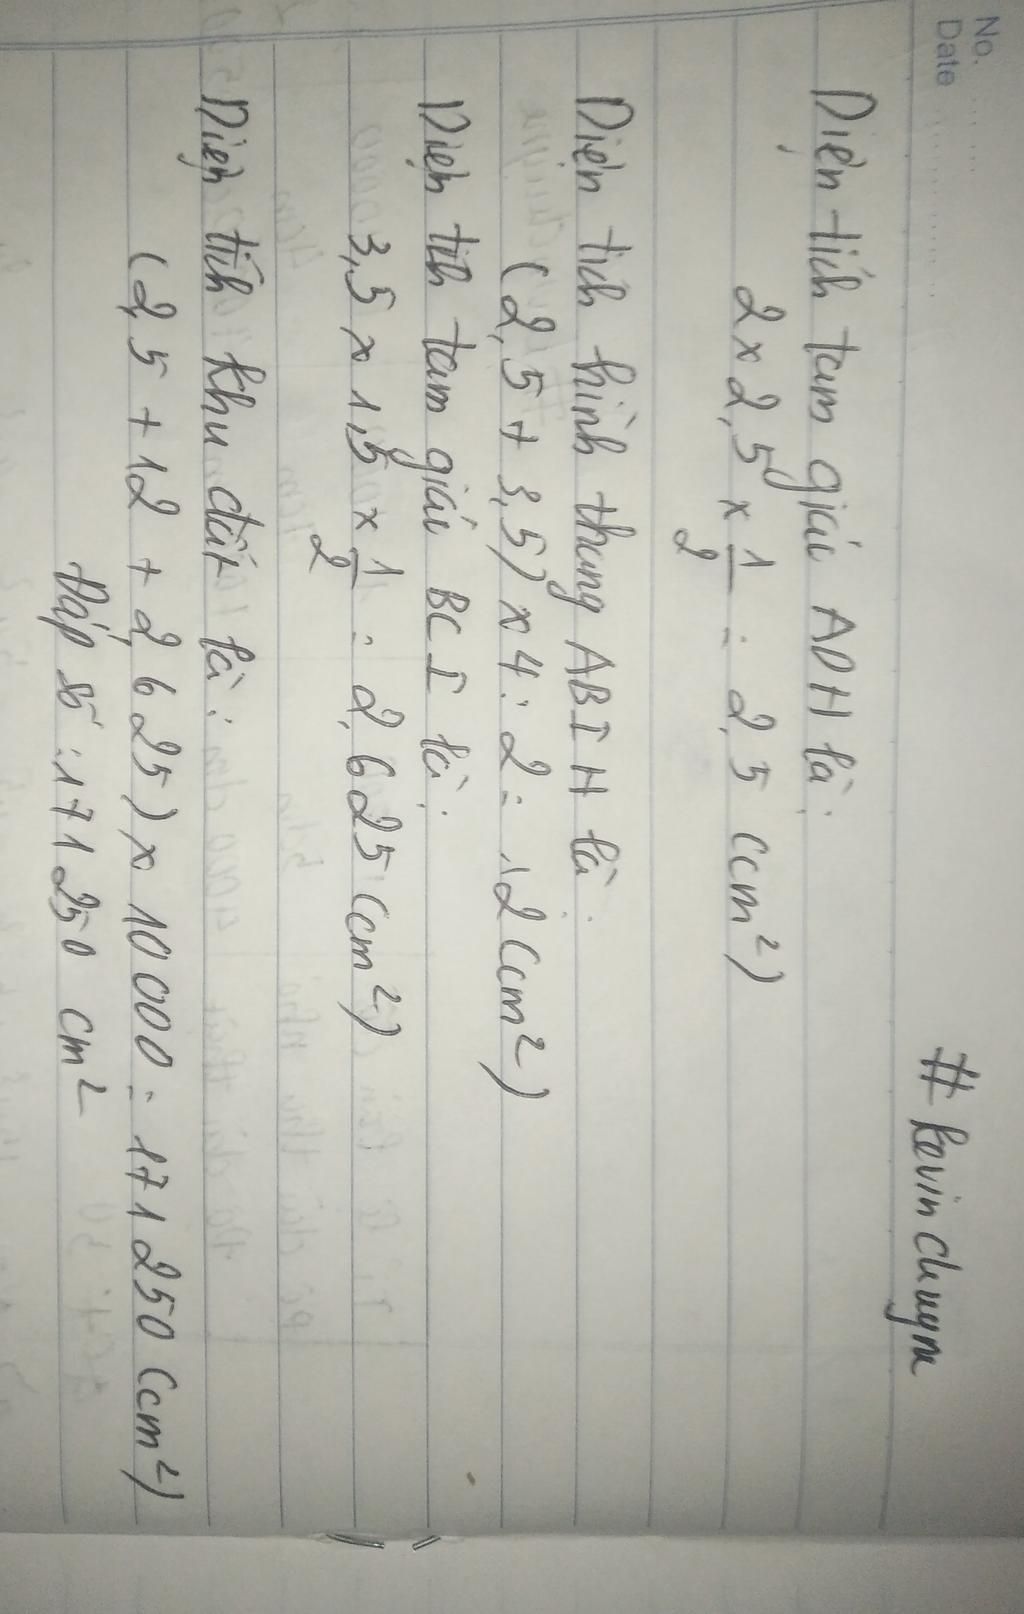 No.
Date
# kevin chuyn
Diện tích tam giác ADH là:
2 x 2,5 x 1/2 = 2,5 (cm²)
Diện tích hình thang ABIH là:
(2,5 + 3,5) x 4 : 2 = 12 (cm²)
Diện tích tam giác BCI là:
3,5 x 1,5 x 1/2 = 2,625 (cm²)
Diện tích khu đất là:
(2,5 + 12 + 2,625) x 10000 = 171250 (cm²)
Đáp số: 171250 cm²